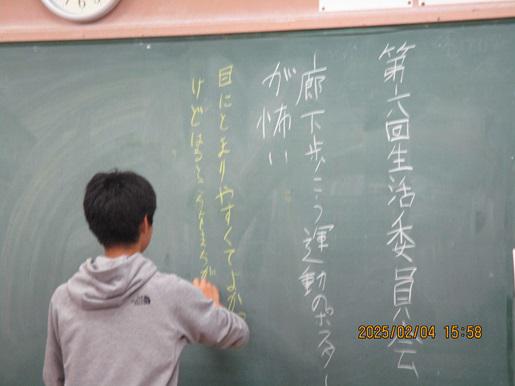 第六回生活委員会
廊下歩こう運動のポスター
が怖い
目にとまりやすくてよかっ
けど
2025/02/04 15:58
THE NORTH FACE